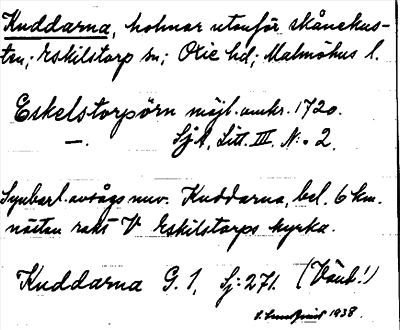 Kuddarna, holmar utanför skånekus-
ten; Eskilstorp sn; Oxie hd; Malmöhus l.
Eskelstorpörn möjl. omkr. 1720.
—. SjA, Litt. III. N:o 2.
Synbarl. avsågs nuv. Kuddarna, bel. 6 km.
nästan rakt V Eskilstorps kyrka.
Kuddarna G. 1, Sj: 271. (Vänd!)
1938.